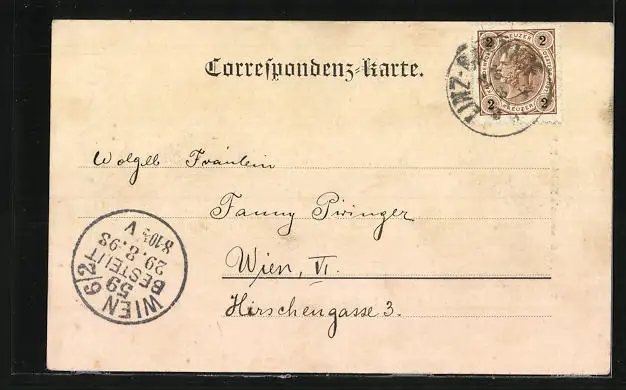 Correspondenz-Karte.
2 KREUZER 2
2 KREUZER 2
LINZ
Wolgeb Fräulein
Fanny Piringer
Wien, VI.
Hirschengasse 3.
WIEN 6/2
59
BESTELLT
29.8.93
8-10½ V